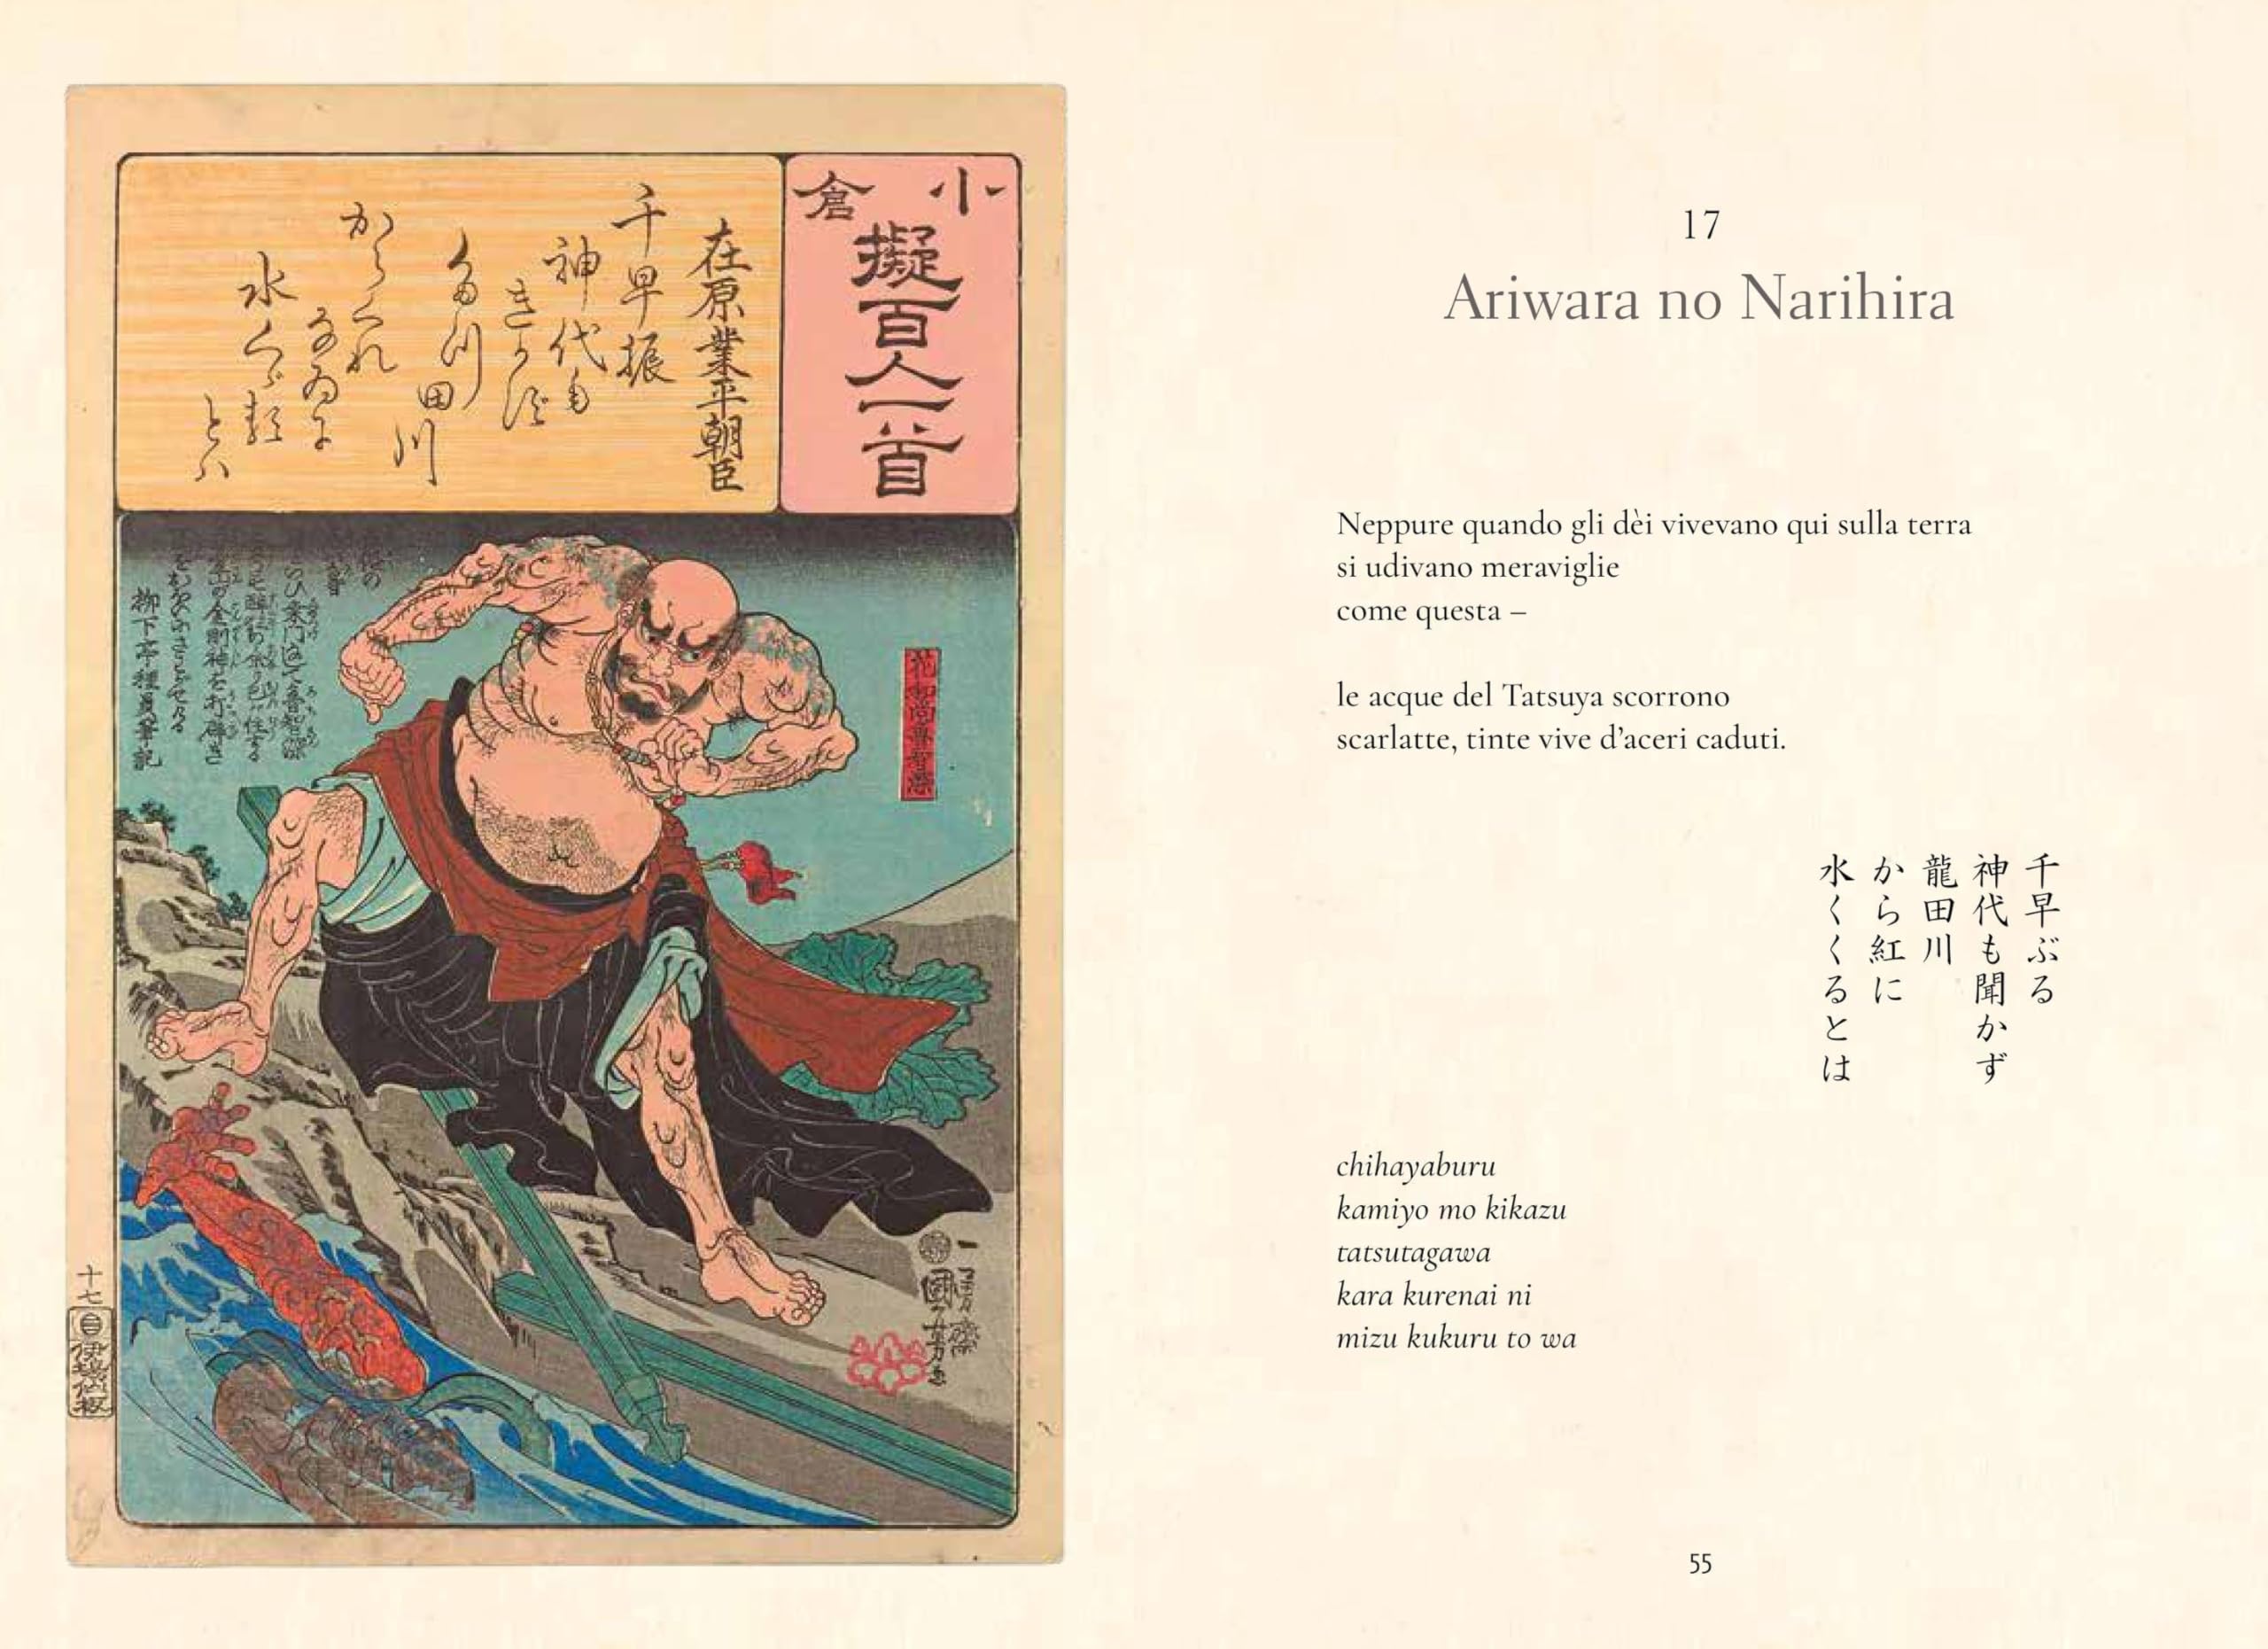 小倉
擬百人一首
在原業平朝臣
千早振
神代も
きかず
田川
からくれ
なゐに
水くゞ類
とハ
花和尚魯智深
柳下亭種員筆記
一勇齋
國芳画
十七
伊場仙板
17
Ariwara no Narihira
Neppure quando gli dèi vivevano qui sulla terra
si udivano meraviglie
come questa –
le acque del Tatsuya scorrono
scarlatte, tinte vive d’aceri caduti.
千早ぶる
神代も聞かず
龍田川
から紅に
水くくるとは
chihayaburu
kamiyo mo kikazu
tatsutagawa
kara kurenai ni
mizu kukuru to wa
55